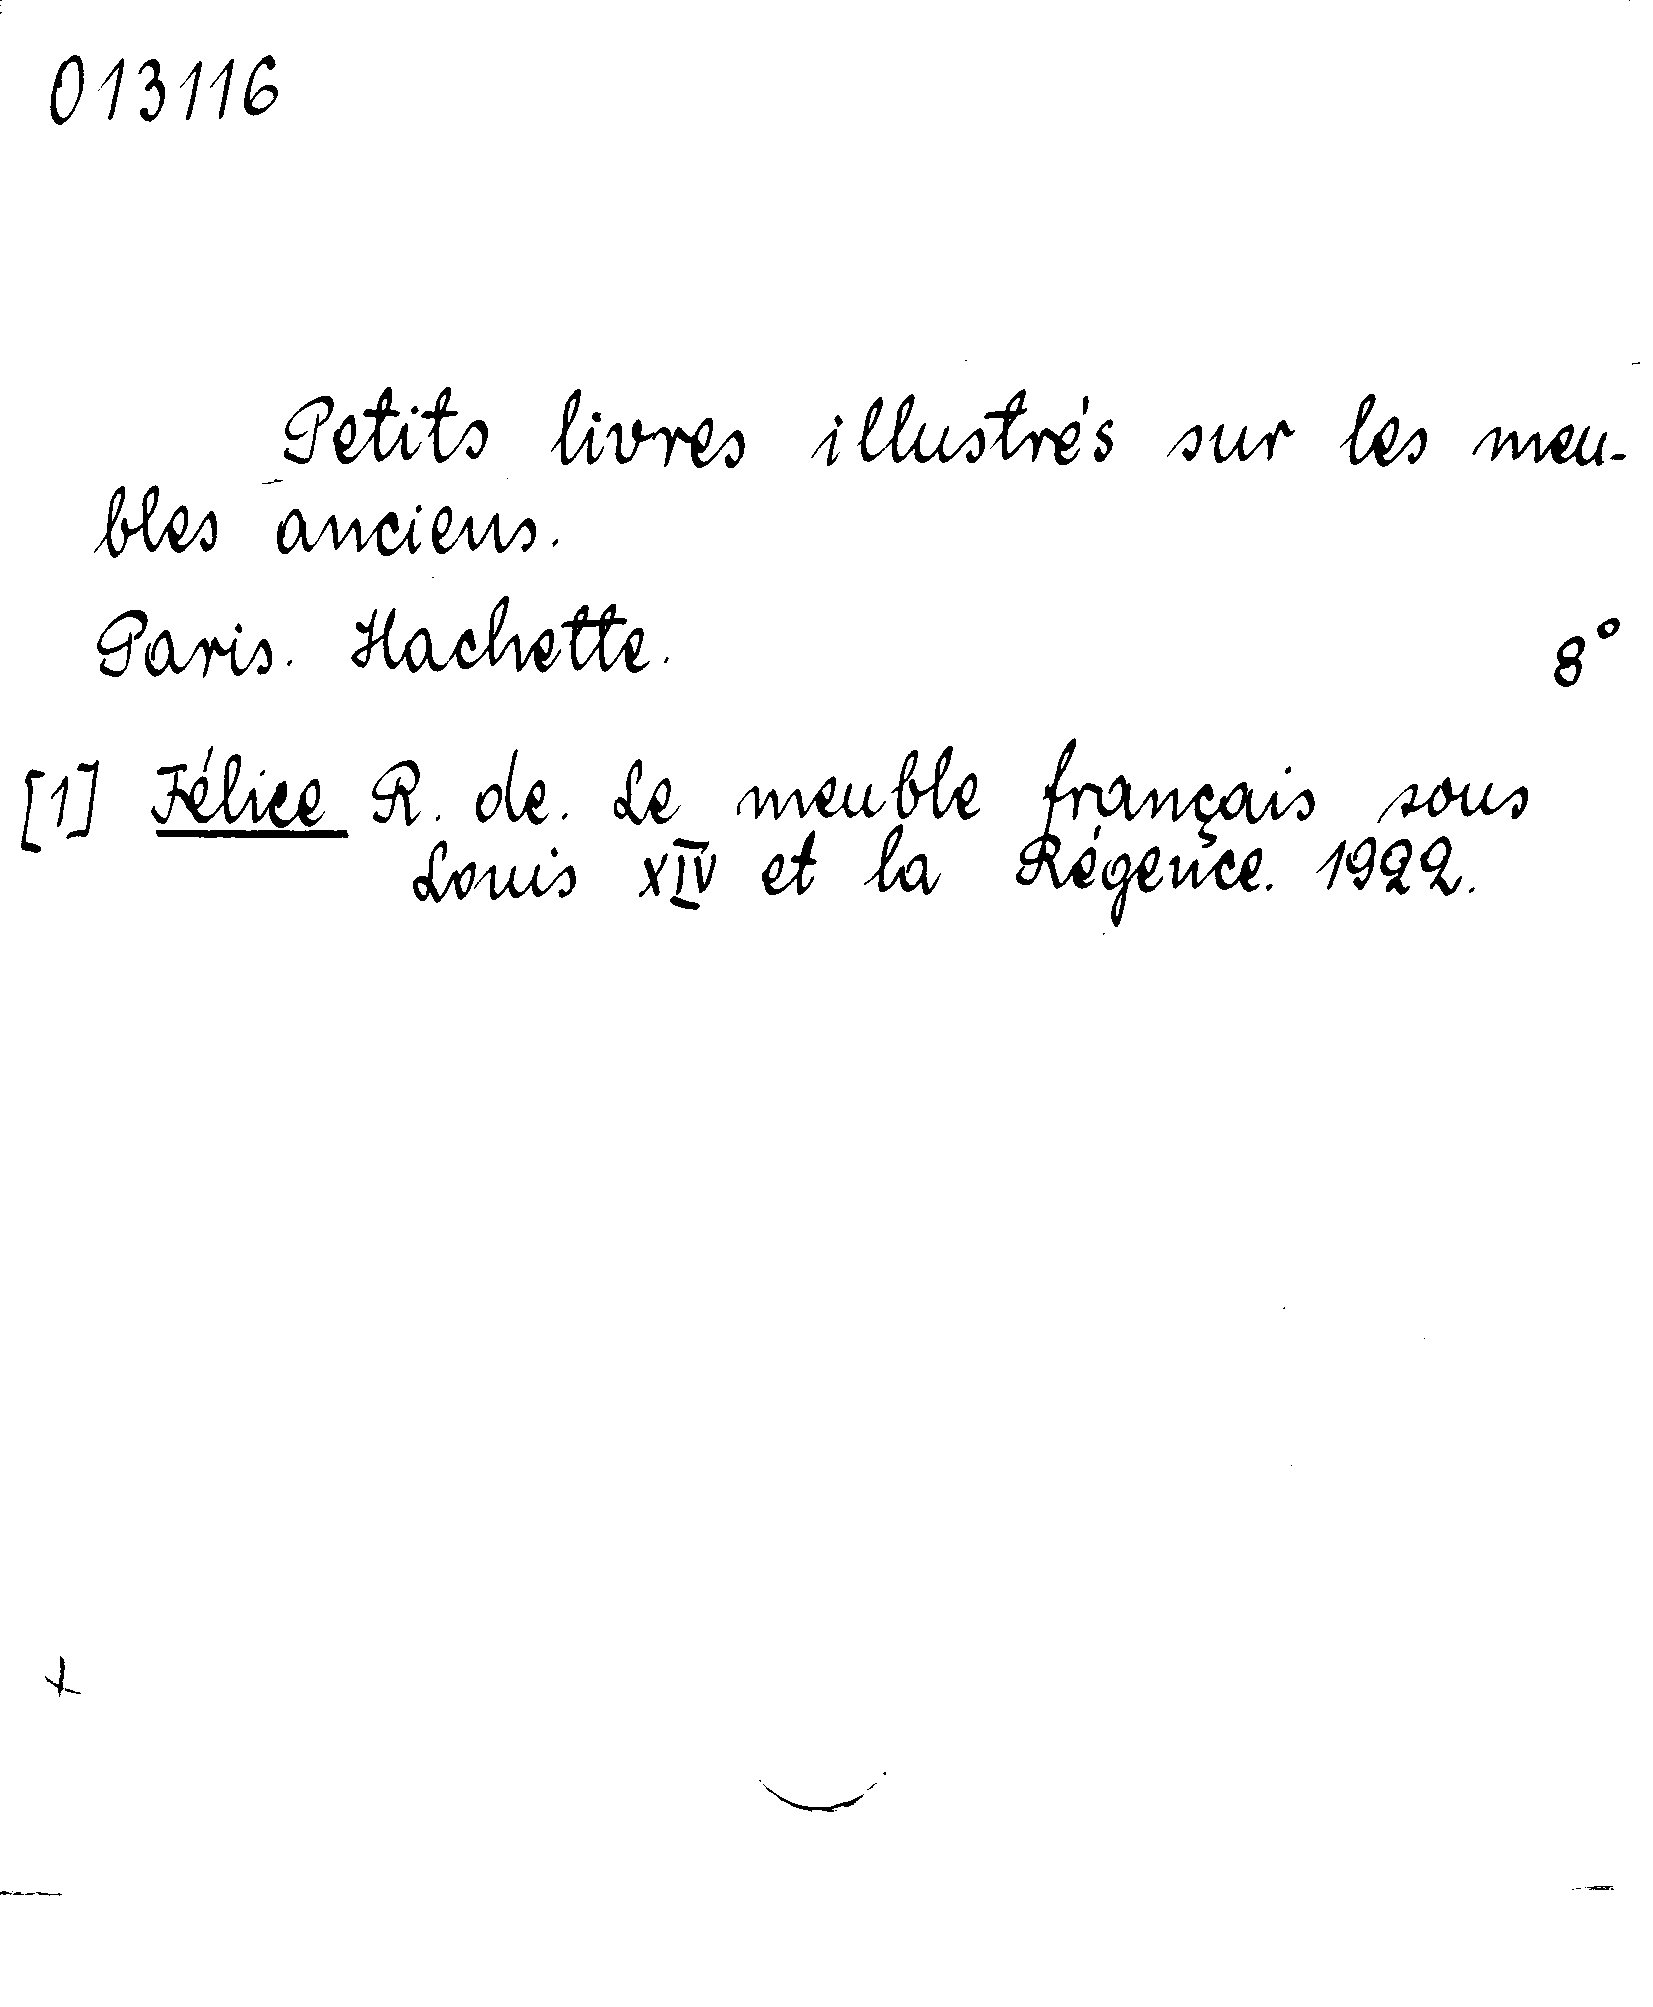 013116
Petits livres illustrés sur les meu-
bles anciens.
Paris. Hachette. 8°
[1] Félice R. de. Le meuble français sous
Louis XIV et la Régence. 1922.
+